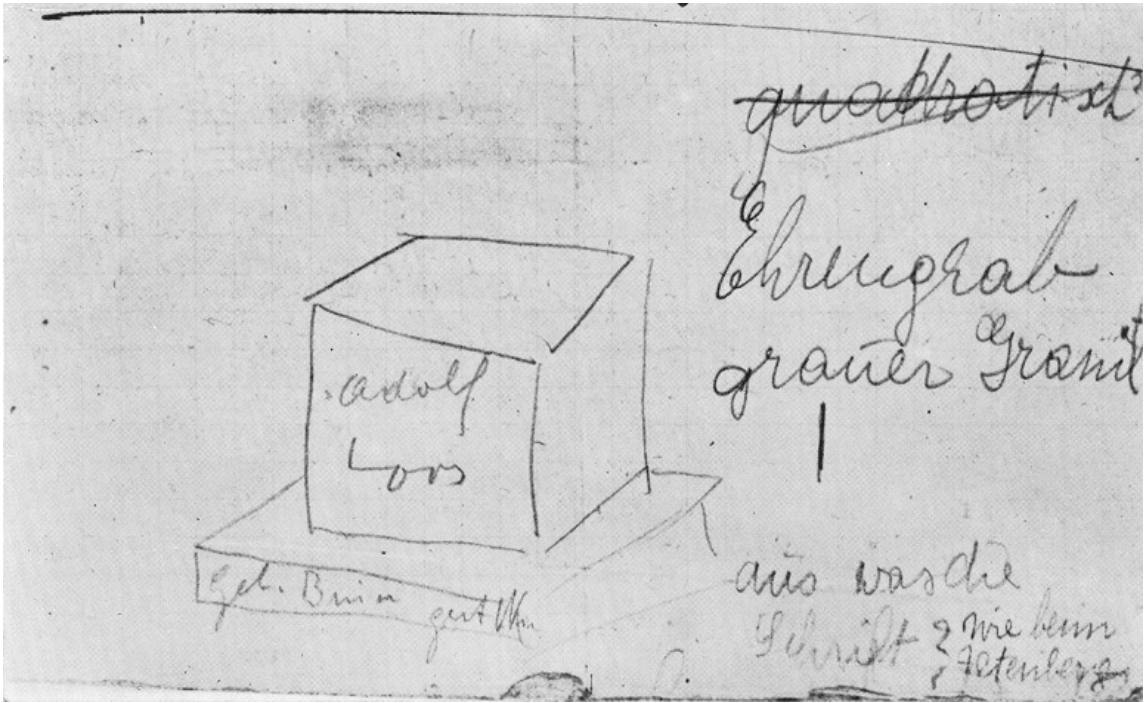 quadratisch
Ehrengrab
grauer Granit
Adolf
Loos
geb. Brünn gest Wn
aus was die
Schrift ? wie beim